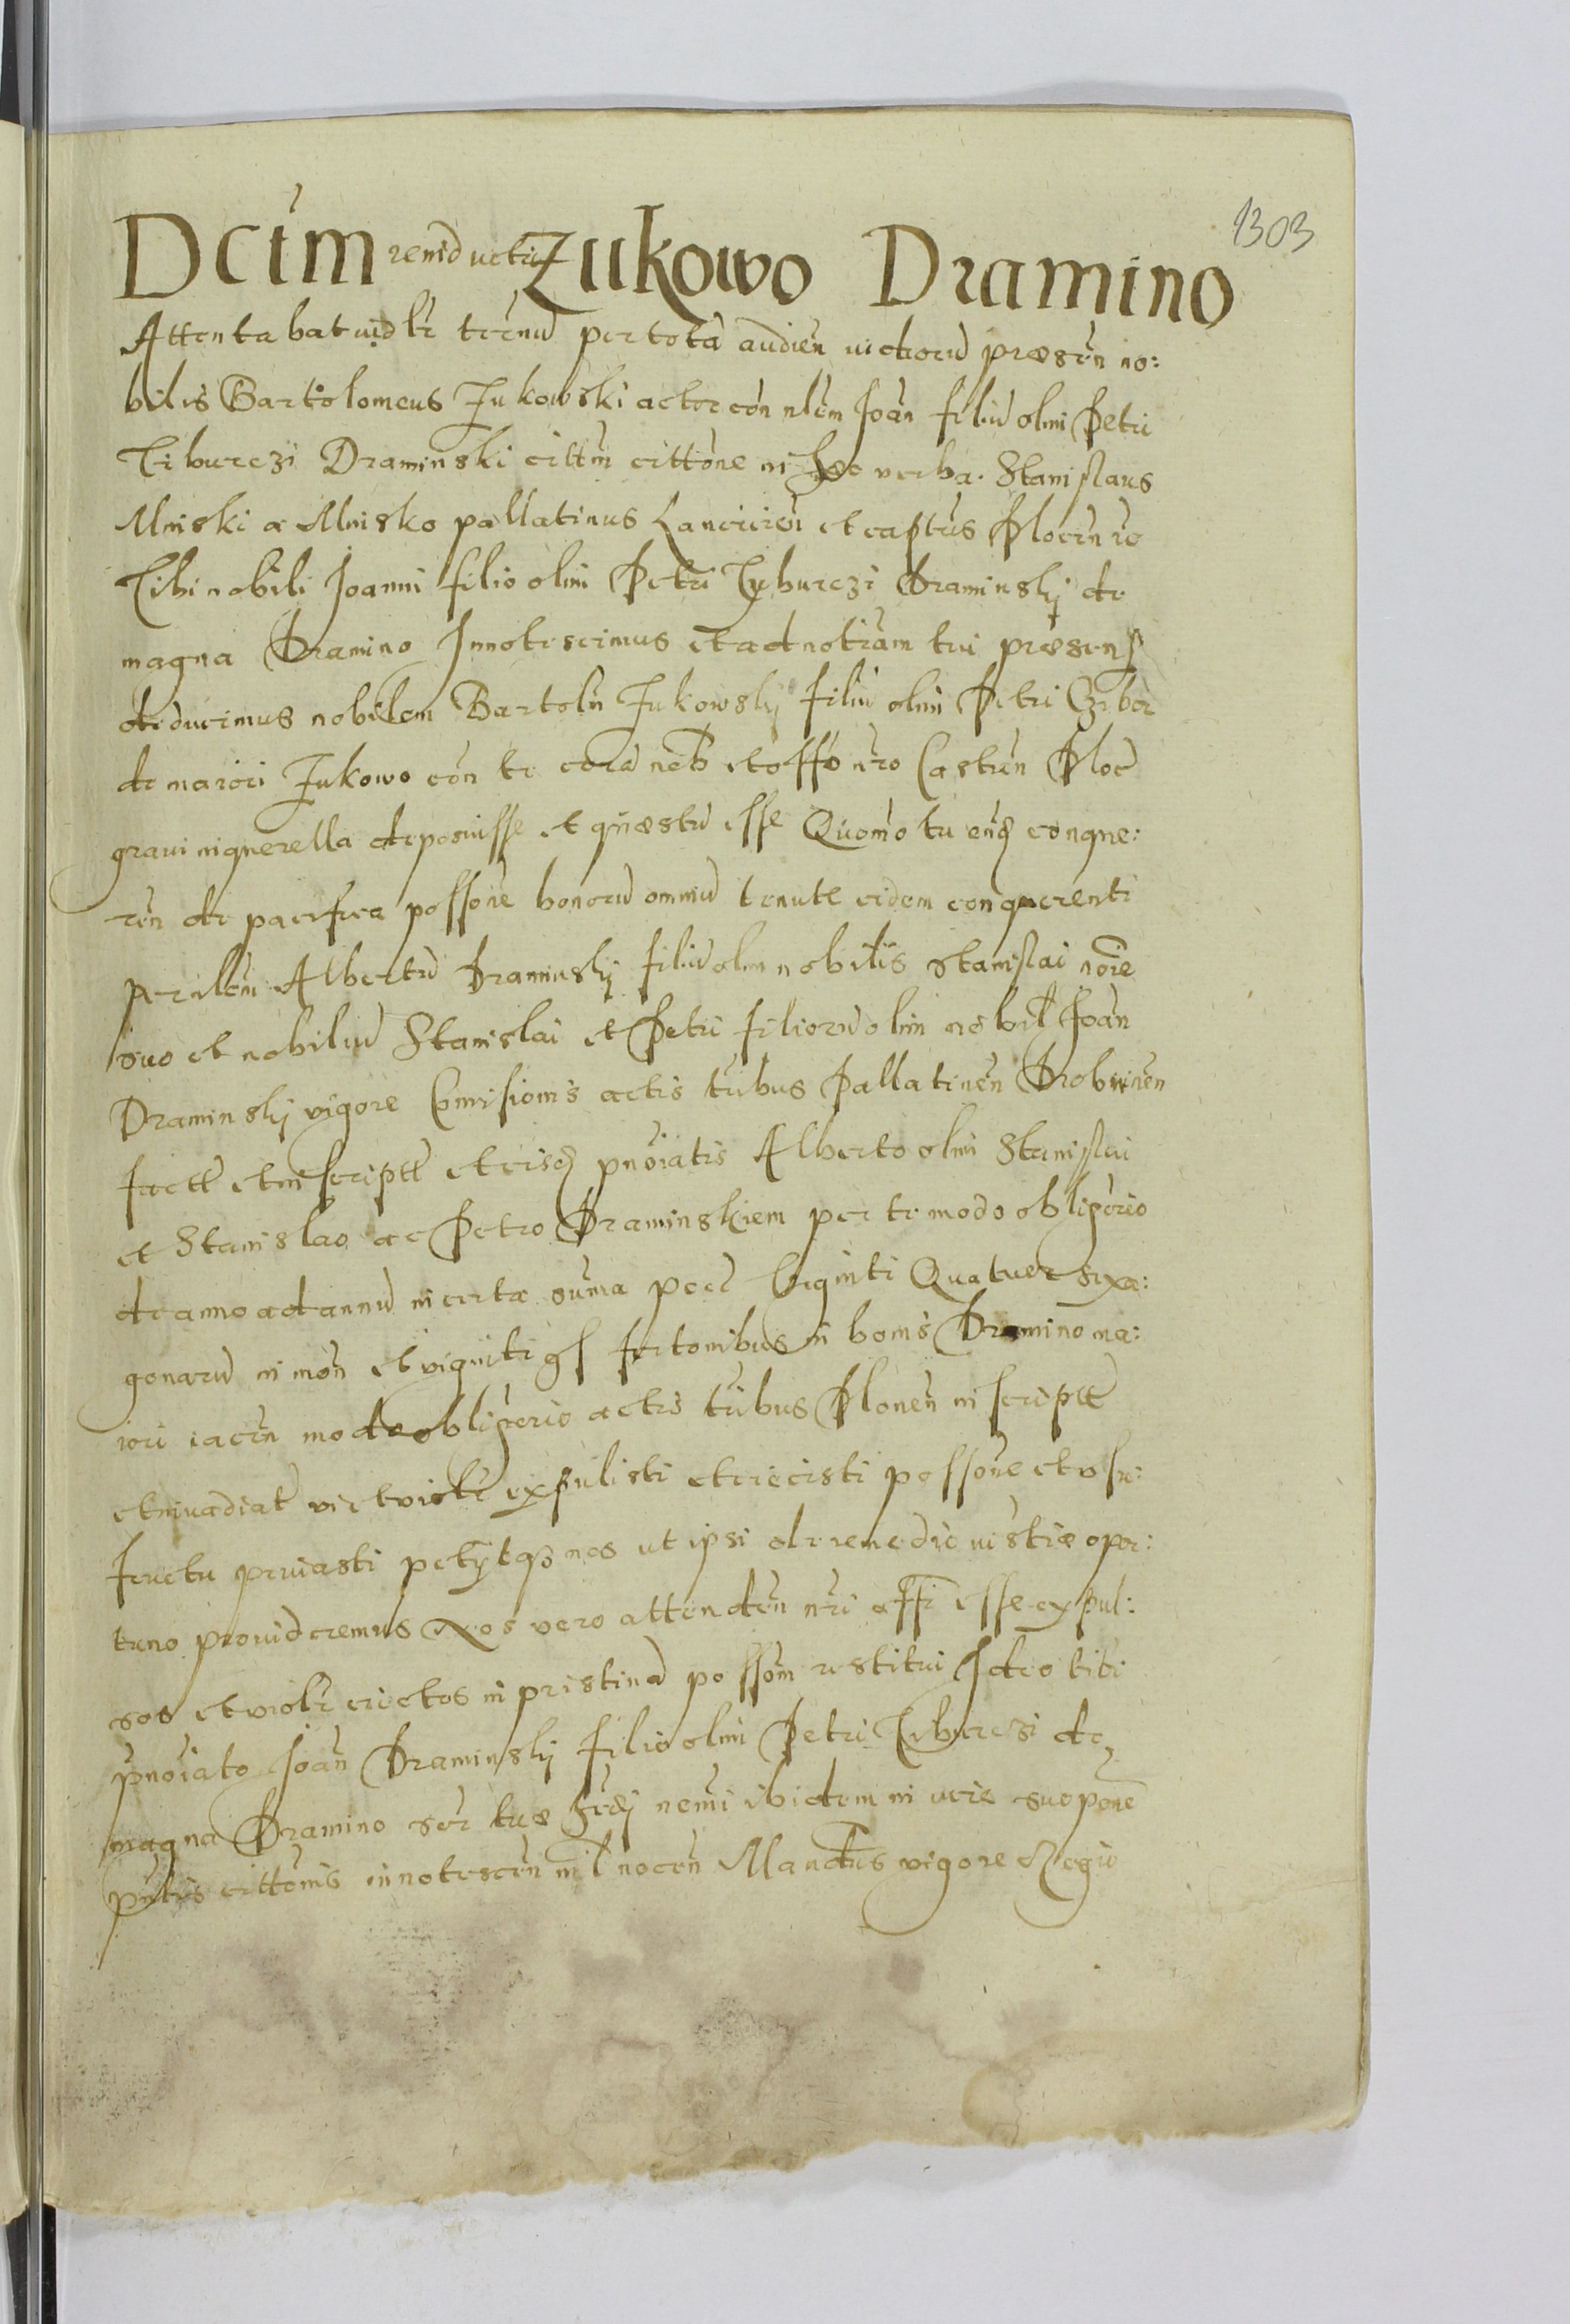 1303
Dctm reinductio Zukowo Dramino
Attentabat iudlr termu per totā audien uictoru præsen no:
bilis Bartolomeus Zukowski actor con nlem Joan filiu olim Petri
Tiburczi Draminski cittm cittōne in hæc verba. Stanislaus
Minski a Minsko pallatinus Lancicien et captus Plocen
Tibi nobili Joanni filio olim Petri Tyburczi Draminskij de
magna Dramino Innotescimus et ad notiam tui præsens
deducimus nobilem Bartolm Zukowskij filiu olim Petri
de maiori Zukowo con te cora nob et offo nro Castren Ploc
graui in querella deposuisse et quæstu esse Quomo tu eund conque:
ren de pacifica possone bonoru omniu tenute eidem conquerenti
per nlem Albertu Draminskij filiu olim nobilis Stanislai noie
suo et nobiliu Stanislai et Petri filioru olim nobil Joan
Draminskij vigore Comisionis actis trbus Pallatinen Drobninen
factt et inscriptt et eisd pnoiatis Alberto olim Stanislai
et Stanislao ac Petro Draminskiem per te modo obligorio
de anno ad annu in certa suma pec viginti Quatuor sexa:
gonaru in mon et viginti gs fertonibus in bonis Dramino ma:
iori iacen modo obligorio actis trbus Plonen inscriptt
et inuadiat vi et violr expulisti et eiecisti possone et usu:
fructu priuasti petijtqз nos ut ipsi de remedio iustiæ opor:
tuno prouideremus Nos vero attenden nri offi esse expul:
sos et violr eiectos in pristina possom restitui Ideo tibi
pnoiato Joan Draminskij filio olim Petri Tiburczi de
magna Dramino ser tuæ hrdj nemi ibidem in uere suo pone
pntis cittonis innotescen nil nocen Mandtus vigore Regio